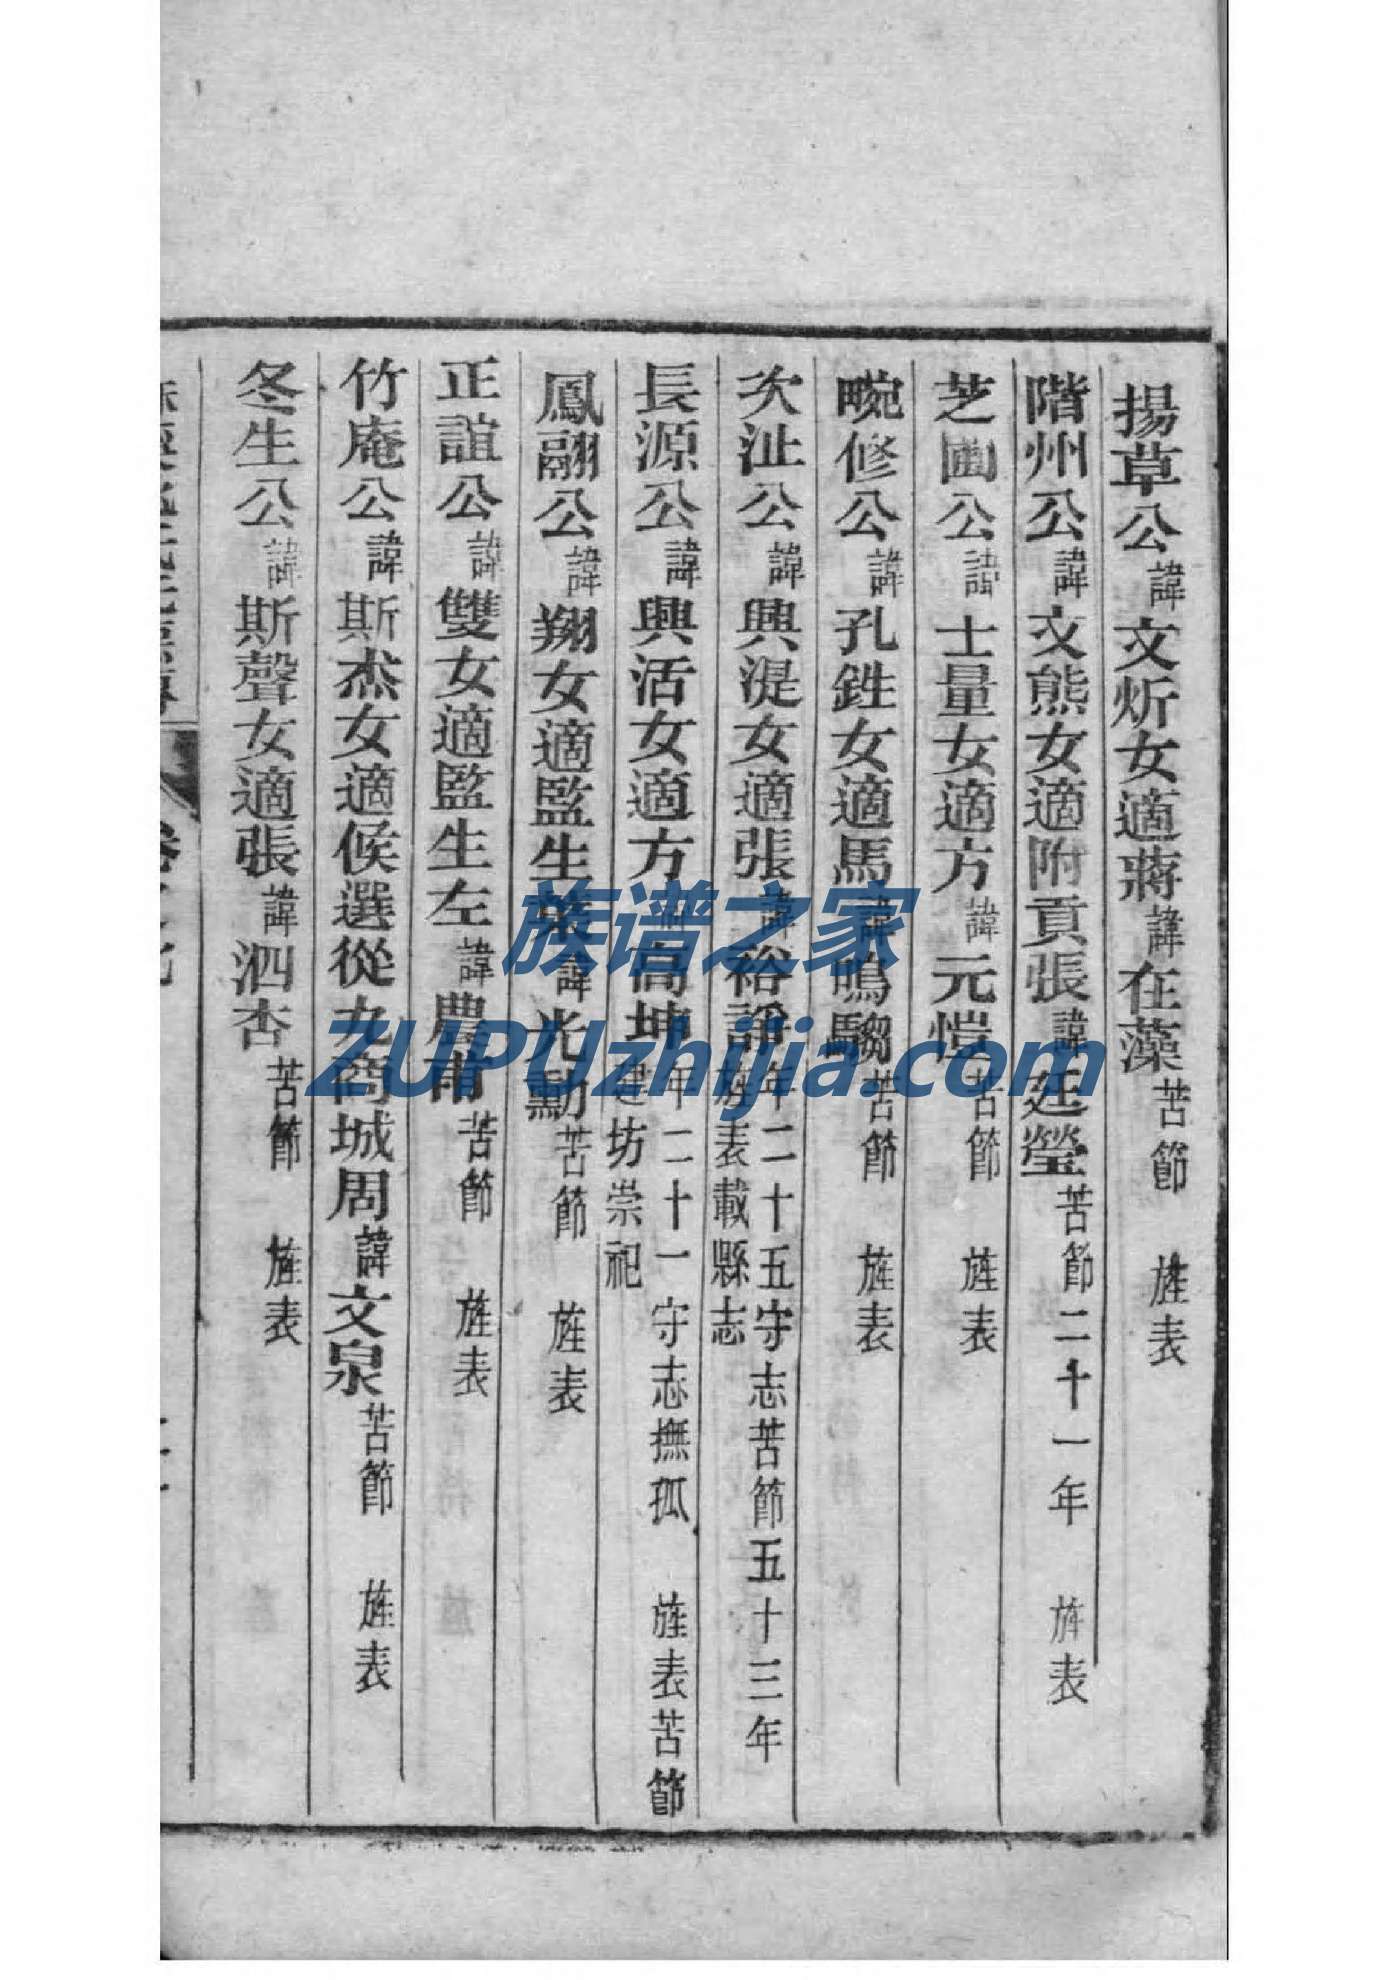 揚草公諱文炘女適蔣諱在藻苦節 旌表
階州公諱文熊女適附貢張諱廷瑩苦節二十一年 旌表
芝圃公諱士量女適方諱元愷苦節 旌表
畹修公諱孔鉎女適馬諱鳴騶苦節 旌表
次沚公諱興湜女適張諱裕諍年二十五守志苦節五十三年
旌表載縣志
長源公諱興活女適方諱高坤年二十一 守志撫孤 旌表苦節
建坊崇祀
鳳翮公諱翔女適監生葉諱光勳苦節 旌表
正誼公諱雙女適監生左諱農甫苦節 旌表
竹庵公諱斯杰女適候選從九商城周諱文泉苦節 旌表
冬生公諱斯聲女適張諱泗杏苦節 旌表
族谱之家
ZUPUzhijia.com